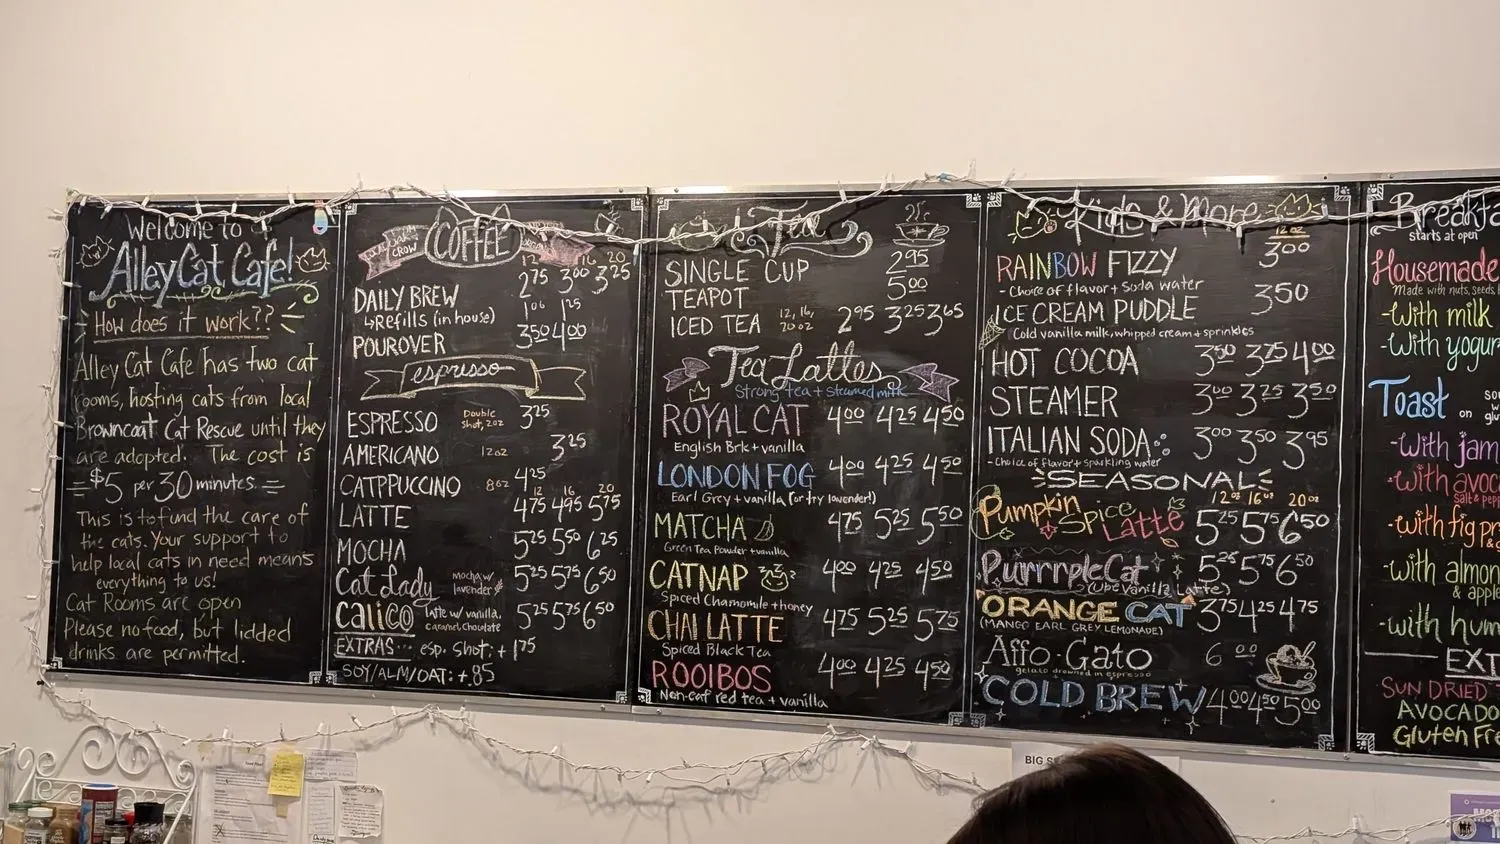 Welcome to
Alley Cat Cafe!
How does it work??
Alley Cat Cafe has two cat
rooms, hosting cats from local
Browncoat Cat Rescue until they
are adopted. The cost is
$5 per 30 minutes.
This is to fund the care of
the cats. Your support to
help local cats in need means
everything to us!
Cat Rooms are open
Please no food, but lidded
drinks are permitted.
COFFEE
12 16 20
DAILY BREW 2.75 3.00 3.25
↳Refills (in house) 1.00 1.25
POUROVER 3.50 4.00
espresso
ESPRESSO Double Shot, 2oz 3.25
AMERICANO 12oz 3.25
CATPPUCCINO 8oz 4.25
12 16 20
LATTE 4.75 4.95 5.75
MOCHA 5.25 5.50 6.25
Cat Lady mocha w/ lavender 5.25 5.75 6.50
Calico latte w/ vanilla, caramel, chocolate 5.25 5.75 6.50
EXTRAS... esp. shot: +1.75
SOY/ALM/OAT: +.85
Tea
SINGLE CUP 2.95
TEAPOT 5.00
ICED TEA 12, 16, 20 oz 2.95 3.25 3.65
Tea Lattes
Strong tea + steamed milk
ROYAL CAT 4.00 4.25 4.50
English Brk + vanilla
LONDON FOG 4.00 4.25 4.50
Earl Grey + vanilla (or try lavender!)
MATCHA 4.75 5.25 5.50
Green Tea Powder + vanilla
CATNAP 4.00 4.25 4.50
Spiced Chamomile + honey
CHAI LATTE 4.75 5.25 5.75
Spiced Black Tea
ROOIBOS 4.00 4.25 4.50
Non-caf red tea + vanilla
Kids & More
12oz
RAINBOW FIZZY 3.00
- Choice of flavor + Soda water
ICE CREAM PUDDLE 3.50
Cold vanilla milk, whipped cream + sprinkles
HOT COCOA 3.50 3.75 4.00
STEAMER 3.00 3.25 3.50
ITALIAN SODA 3.00 3.50 3.95
- Choice of flavor + sparkling water
SEASONAL
12oz 16oz 20oz
Pumpkin Spice Latte 5.25 5.75 6.50
PurrrpleCat 5.25 5.75 6.50
(Ube Vanilla Latte)
ORANGE CAT 3.75 4.25 4.75
(MANGO EARL GREY LEMONADE)
Affo-Gato 6.00
gelato drowned in espresso
COLD BREW 4.00 4.50 5.00
Breakfa
starts at open
Housemade
Made with nuts, seeds,
-with milk
-with yogur
Toast on
-with jam
-with avoc
salt & pepp
-with fig pr
-with almon
& apple
-with humm
EXT
SUN DRIED
AVOCADO
Gluten Fre
BIG S